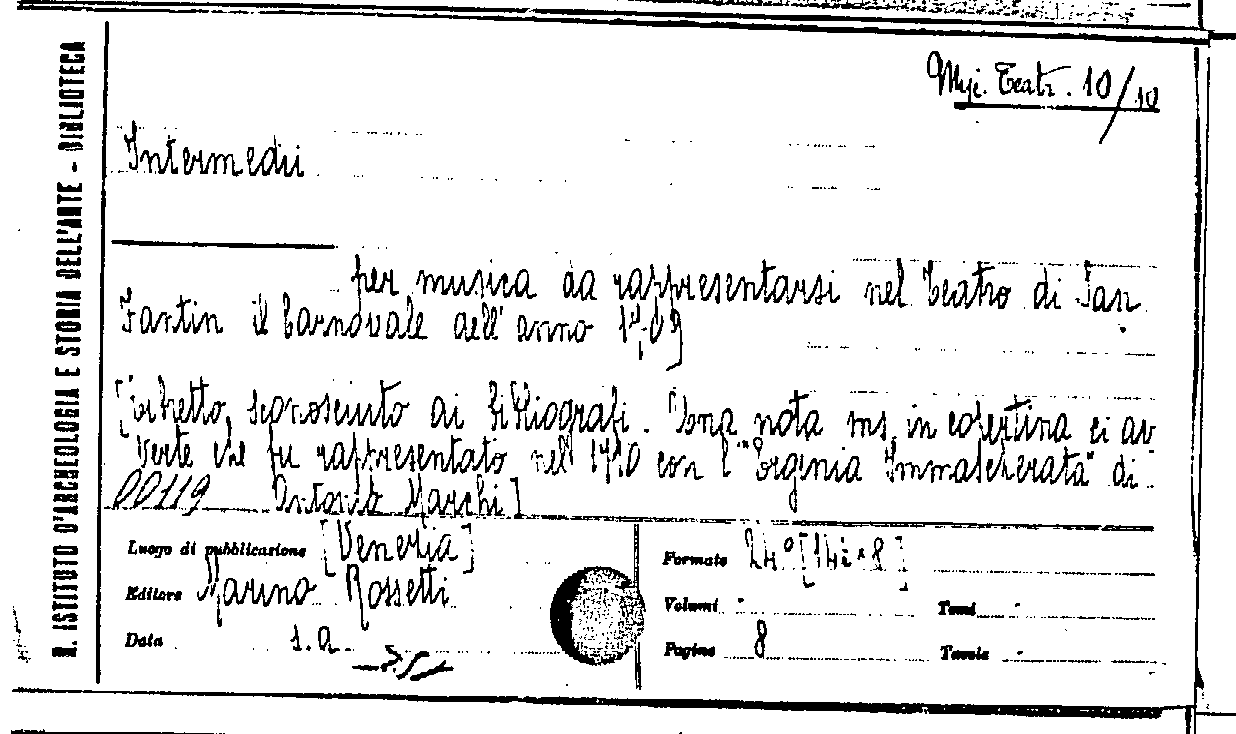 R. ISTITUTO D'ARCHEOLOGIA E STORIA DELL'ARTE - BIBLIOTECA
Teatr. 10/10
Intermedii
per musica da rappresentarsi nel Teatro di San
Fantin il Carnovale dell' anno 1709
[Libretto, sconosciuto ai bibliografi. Una nota ms, in copertina ci av
verte che fu rappresentato nel 1710 con l'"Ergenia Immascherata" di
00119 Antonio Marchi]
Luogo di pubblicazione [Venezia]
Editore Marino Rossetti
Data s.a.
Formato 24° [14 × 8]
Volumi - Tomi -
Pagine 8 Tavole -